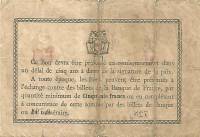 Ce Bon devra être présenté au remboursement dans
un délai de cinq ans à dater de la signature de la paix.
A toute époque, les Bons peuvent être présentés à
l'échange contre des billets de la Banque de France, par
quantité minimum de Cinquante francs ou en complétant
à concurrence de cette somme par des billets de banque
ou du numéraire.